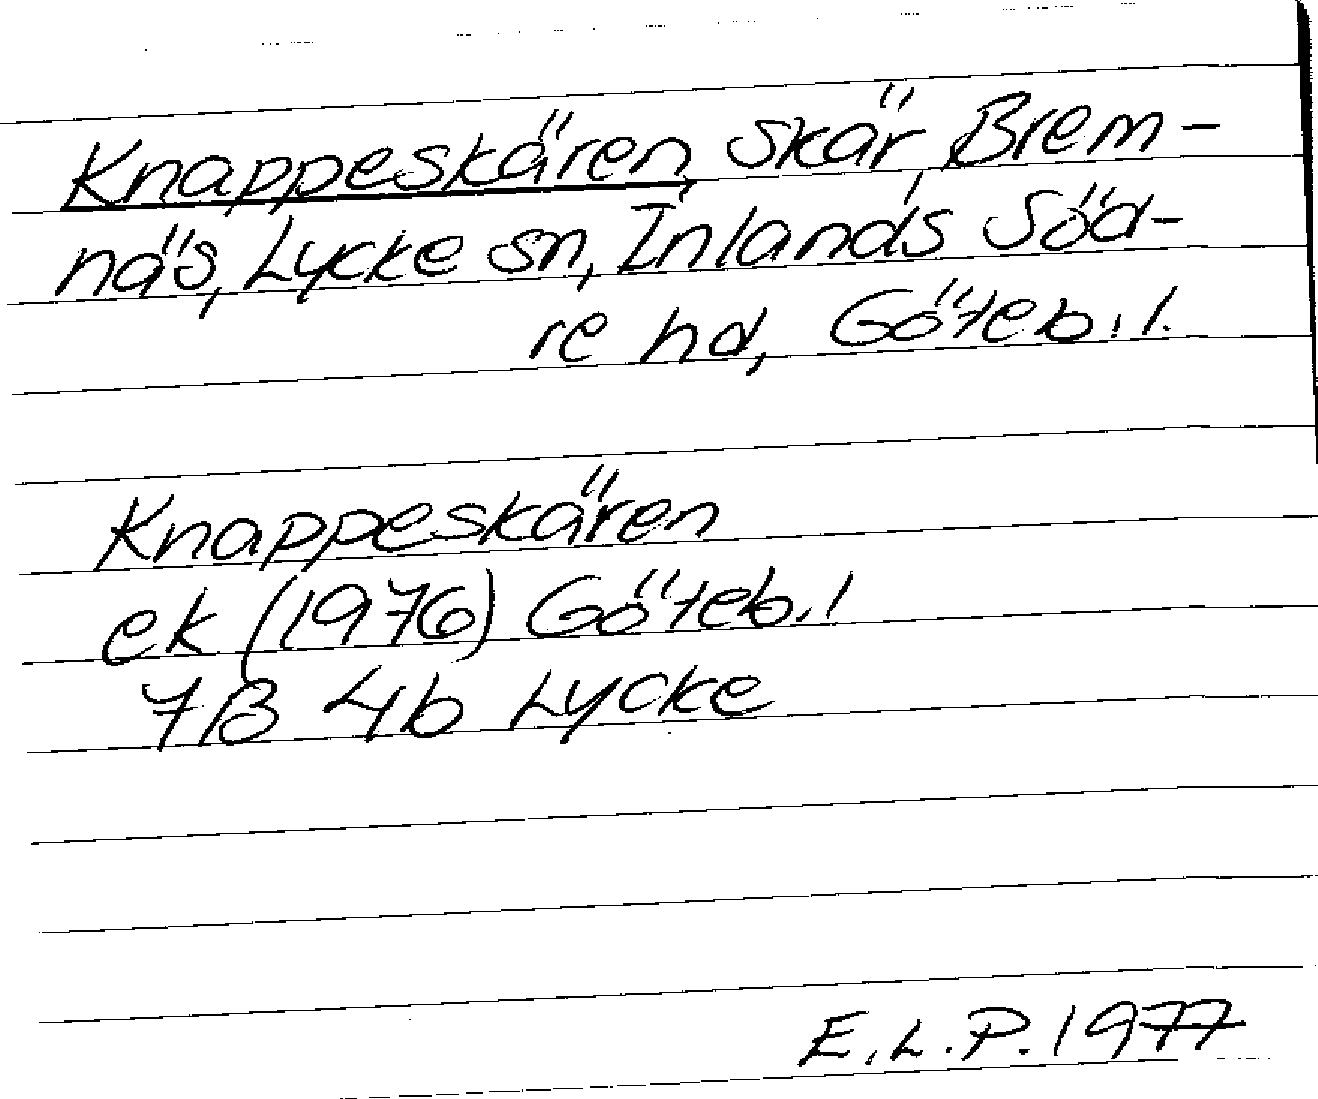 Knappeskären, skär, Brem-
näs, Lycke sn, Inlands Söd-
re hd, Göteb. l.
Knappeskären
ek (1976) Göteb. l
7B 4b Lycke
E.L.P. 1977